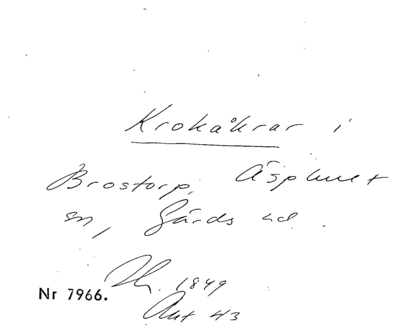 Krokåkrar i
Brostorp, Äsphult
sn, Gärds hd.
1849
Nr 7966.
Akt 43